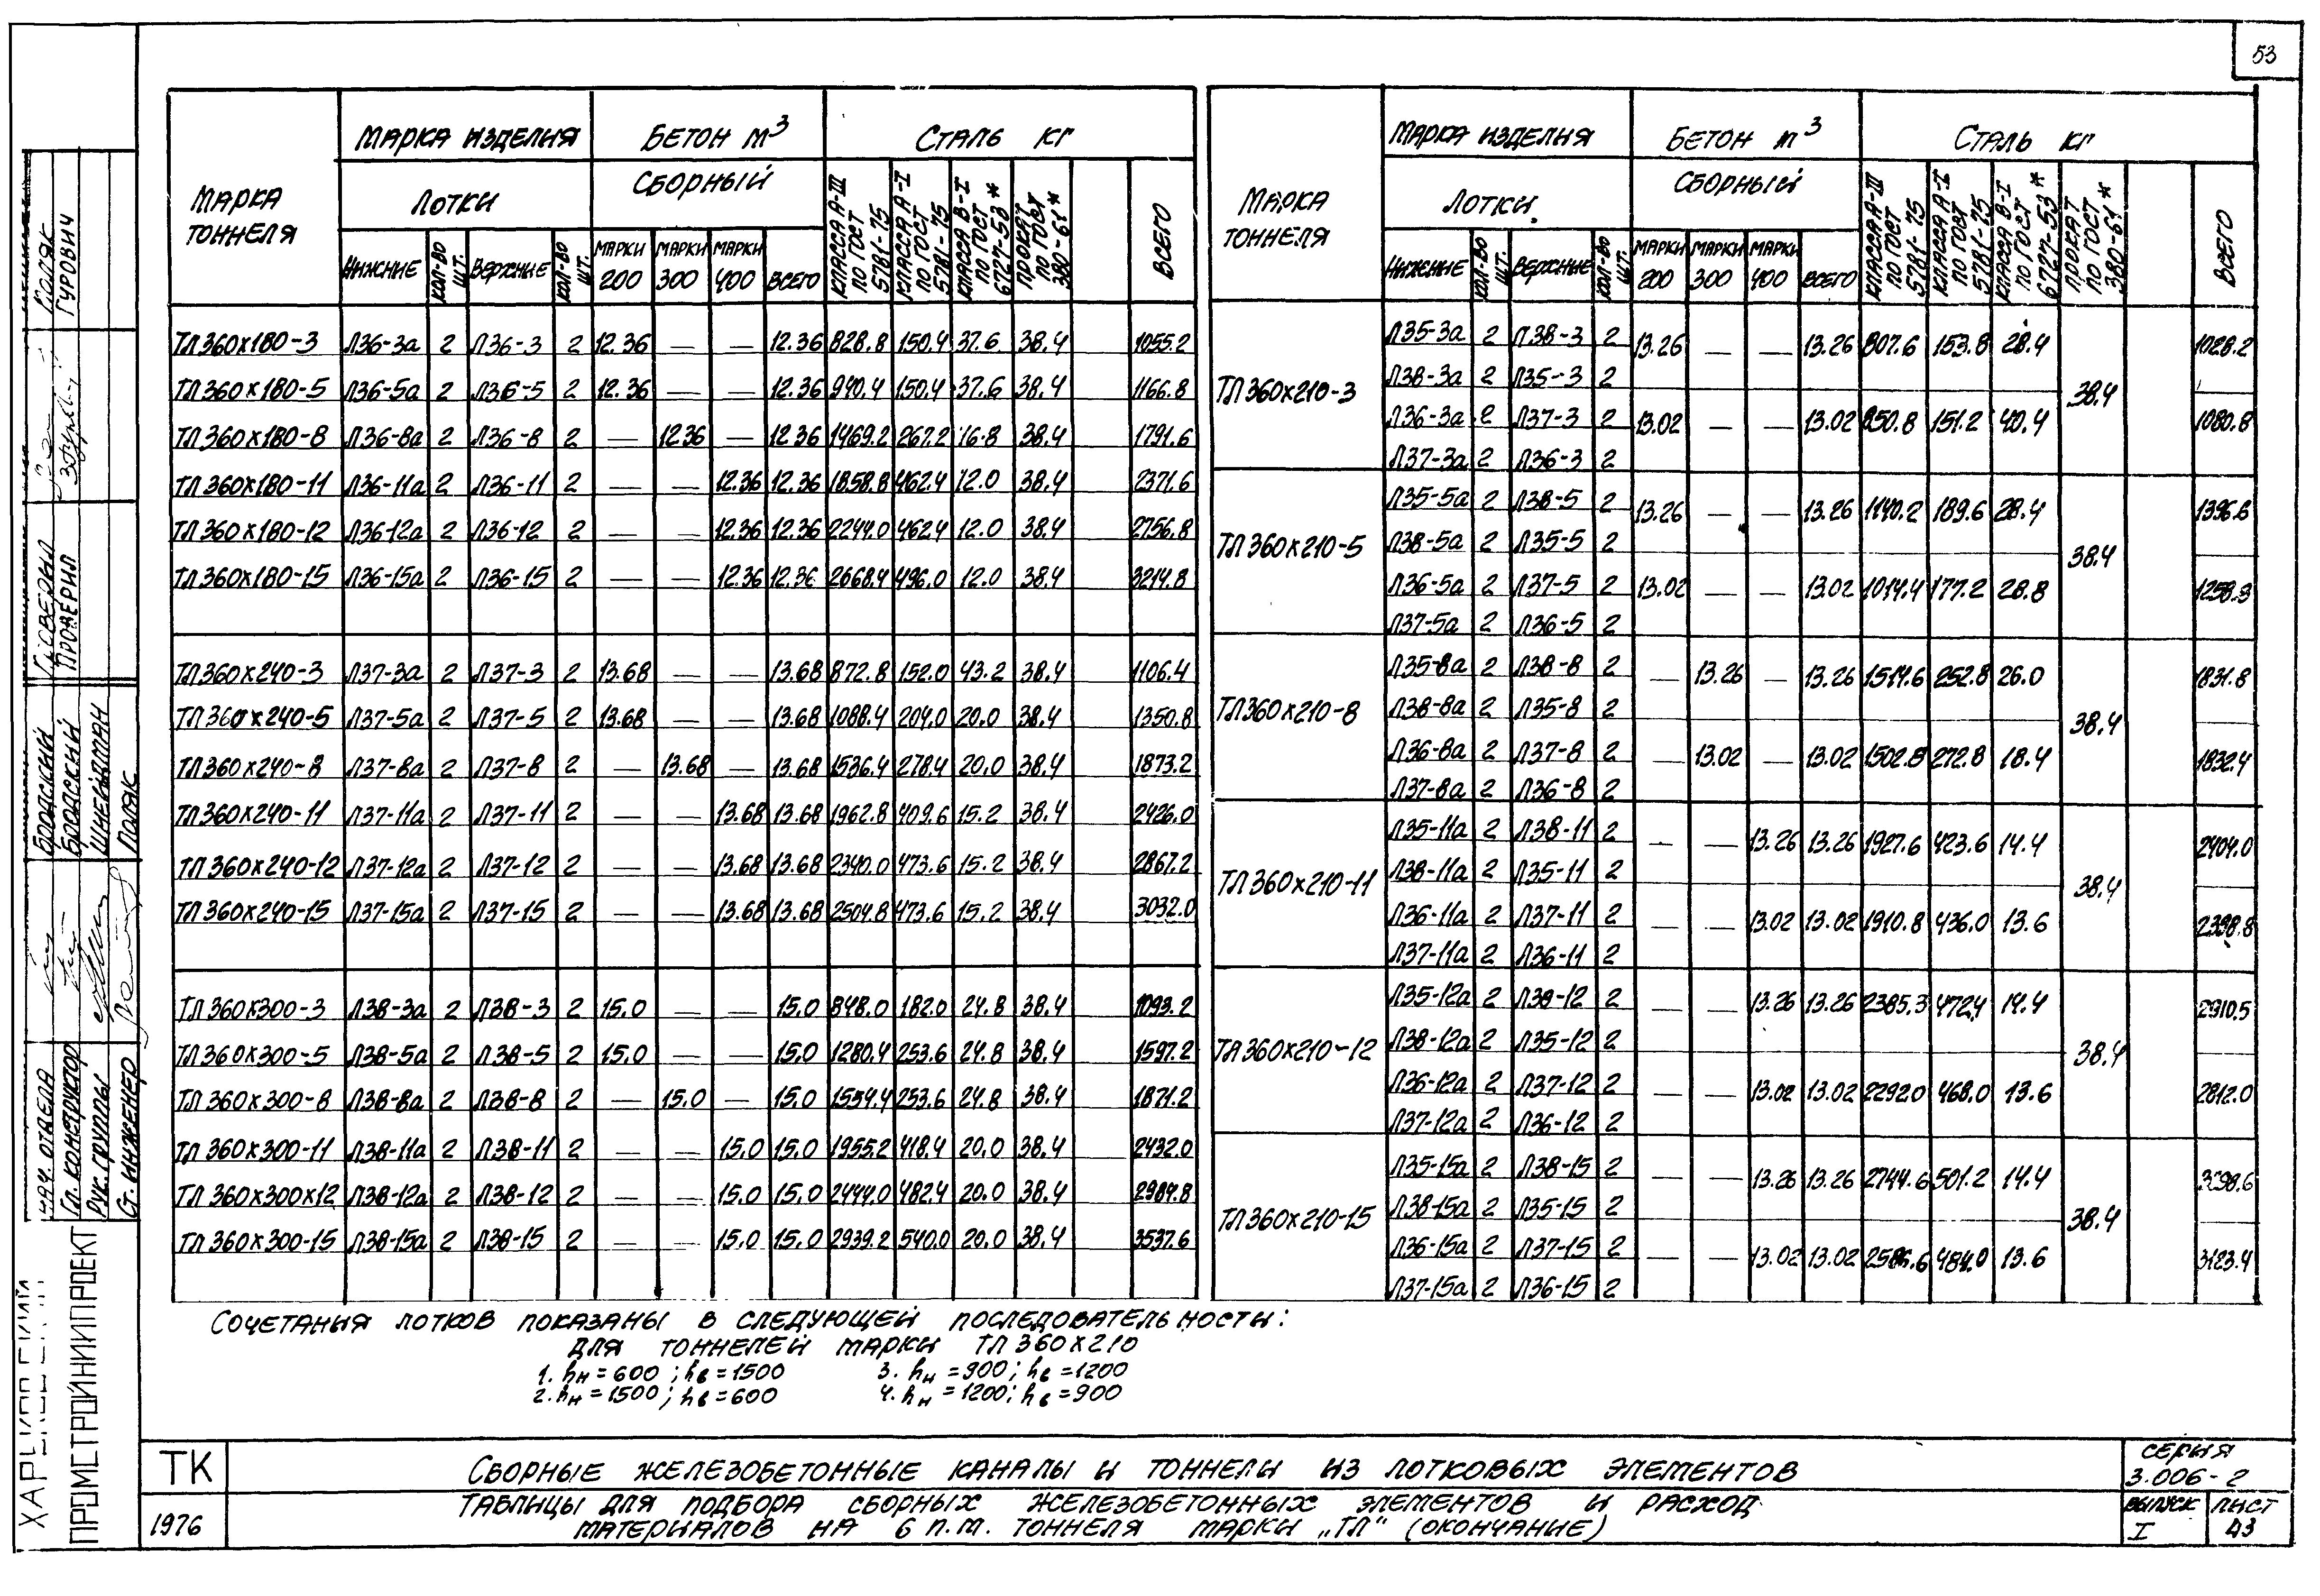 53
МАРКА ТОННЕЛЯ | МАРКА ИЗДЕЛИЯ | БЕТОН М³ | СТАЛЬ КГ
ЛОТКИ | СБОРНЫЙ | КЛАССА А-III ПО ГОСТ 5781-75 | КЛАССА А-I ПО ГОСТ 5781-75 | КЛАССА В-I ПО ГОСТ 6727-53* | ПРОКАТ ПО ГОСТ 380-61* | ВСЕГО
НИЖНИЕ | КОЛ-ВО ШТ. | ВЕРХНИЕ | КОЛ-ВО ШТ. | МАРКИ 200 | МАРКИ 300 | МАРКИ 400 | ВСЕГО
ТЛ360х180-3 | Л36-3а | 2 | Л36-3 | 2 | 12.36 | — | — | 12.36 | 828.8 | 150.4 | 37.6 | 38.4 | 1055.2
ТЛ360х180-5 | Л36-5а | 2 | Л36-5 | 2 | 12.36 | — | — | 12.36 | 940.4 | 150.4 | 37.6 | 38.4 | 1166.8
ТЛ360х180-8 | Л36-8а | 2 | Л36-8 | 2 | — | 12.36 | — | 12.36 | 1469.2 | 267.2 | 16.8 | 38.4 | 1791.6
ТЛ360х180-11 | Л36-11а | 2 | Л36-11 | 2 | — | — | 12.36 | 12.36 | 1858.8 | 462.4 | 12.0 | 38.4 | 2371.6
ТЛ360х180-12 | Л36-12а | 2 | Л36-12 | 2 | — | — | 12.36 | 12.36 | 2244.0 | 462.4 | 12.0 | 38.4 | 2756.8
ТЛ360х180-15 | Л36-15а | 2 | Л36-15 | 2 | — | — | 12.36 | 12.36 | 2668.4 | 496.0 | 12.0 | 38.4 | 3214.8
ТЛ360х240-3 | Л37-3а | 2 | Л37-3 | 2 | 13.68 | — | — | 13.68 | 872.8 | 152.0 | 43.2 | 38.4 | 1106.4
ТЛ360х240-5 | Л37-5а | 2 | Л37-5 | 2 | 13.68 | — | — | 13.68 | 1088.4 | 204.0 | 20.0 | 38.4 | 1350.8
ТЛ360х240-8 | Л37-8а | 2 | Л37-8 | 2 | — | 13.68 | — | 13.68 | 1536.4 | 278.4 | 20.0 | 38.4 | 1873.2
ТЛ360х240-11 | Л37-11а | 2 | Л37-11 | 2 | — | — | 13.68 | 13.68 | 1962.8 | 409.6 | 15.2 | 38.4 | 2426.0
ТЛ360х240-12 | Л37-12а | 2 | Л37-12 | 2 | — | — | 13.68 | 13.68 | 2340.0 | 473.6 | 15.2 | 38.4 | 2867.2
ТЛ360х240-15 | Л37-15а | 2 | Л37-15 | 2 | — | — | 13.68 | 13.68 | 2504.8 | 473.6 | 15.2 | 38.4 | 3032.0
ТЛ360х300-3 | Л38-3а | 2 | Л38-3 | 2 | 15.0 | — | — | 15.0 | 848.0 | 182.0 | 24.8 | 38.4 | 1093.2
ТЛ360х300-5 | Л38-5а | 2 | Л38-5 | 2 | 15.0 | — | — | 15.0 | 1280.4 | 253.6 | 24.8 | 38.4 | 1597.2
ТЛ360х300-8 | Л38-8а | 2 | Л38-8 | 2 | — | 15.0 | — | 15.0 | 1554.4 | 253.6 | 24.8 | 38.4 | 1871.2
ТЛ360х300-11 | Л38-11а | 2 | Л38-11 | 2 | — | — | 15.0 | 15.0 | 1955.2 | 418.4 | 20.0 | 38.4 | 2432.0
ТЛ360х300х12 | Л38-12а | 2 | Л38-12 | 2 | — | — | 15.0 | 15.0 | 2444.0 | 482.4 | 20.0 | 38.4 | 2984.8
ТЛ360х300-15 | Л38-15а | 2 | Л38-15 | 2 | — | — | 15.0 | 15.0 | 2939.2 | 540.0 | 20.0 | 38.4 | 3537.6
МАРКА ТОННЕЛЯ | МАРКА ИЗДЕЛИЯ | БЕТОН М³ | СТАЛЬ КГ
ЛОТКИ | СБОРНЫЙ | КЛАССА А-III ПО ГОСТ 5781-75 | КЛАССА А-I ПО ГОСТ 5781-75 | КЛАССА В-I ПО ГОСТ 6727-53* | ПРОКАТ ПО ГОСТ 380-61* | ВСЕГО
НИЖНИЕ | КОЛ-ВО ШТ. | ВЕРХНИЕ | КОЛ-ВО ШТ. | МАРКИ 200 | МАРКИ 300 | МАРКИ 400 | ВСЕГО
ТЛ360х210-3 | Л35-3а | 2 | Л38-3 | 2 | 13.26 | — | — | 13.26 | 807.6 | 153.8 | 28.4 | 38.4 | 1028.2
Л38-3а | 2 | Л35-3 | 2
Л36-3а | 2 | Л37-3 | 2 | 13.02 | — | — | 13.02 | 850.8 | 151.2 | 40.4 | 1080.8
Л37-3а | 2 | Л36-3 | 2
ТЛ360х210-5 | Л35-5а | 2 | Л38-5 | 2 | 13.26 | — | — | 13.26 | 1140.2 | 189.6 | 28.4 | 38.4 | 1396.6
Л38-5а | 2 | Л35-5 | 2
Л36-5а | 2 | Л37-5 | 2 | 13.02 | — | — | 13.02 | 1014.4 | 177.2 | 28.8 | 1258.8
Л37-5а | 2 | Л36-5 | 2
ТЛ360х210-8 | Л35-8а | 2 | Л38-8 | 2 | — | 13.26 | — | 13.26 | 1514.6 | 252.8 | 26.0 | 38.4 | 1831.8
Л38-8а | 2 | Л35-8 | 2
Л36-8а | 2 | Л37-8 | 2 | — | 13.02 | — | 13.02 | 1502.8 | 272.8 | 18.4 | 1832.4
Л37-8а | 2 | Л36-8 | 2
ТЛ360х210-11 | Л35-11а | 2 | Л38-11 | 2 | — | — | 13.26 | 13.26 | 1927.6 | 423.6 | 14.4 | 38.4 | 2404.0
Л38-11а | 2 | Л35-11 | 2
Л36-11а | 2 | Л37-11 | 2 | — | — | 13.02 | 13.02 | 1910.8 | 436.0 | 13.6 | 2398.8
Л37-11а | 2 | Л36-11 | 2
ТЛ360х210-12 | Л35-12а | 2 | Л38-12 | 2 | — | — | 13.26 | 13.26 | 2385.3 | 472.4 | 14.4 | 38.4 | 2910.5
Л38-12а | 2 | Л35-12 | 2
Л36-12а | 2 | Л37-12 | 2 | — | — | 13.02 | 13.02 | 2292.0 | 468.0 | 13.6 | 2812.0
Л37-12а | 2 | Л36-12 | 2
ТЛ360х210-15 | Л35-15а | 2 | Л38-15 | 2 | — | — | 13.26 | 13.26 | 2744.6 | 501.2 | 14.4 | 38.4 | 3298.6
Л38-15а | 2 | Л35-15 | 2
Л36-15а | 2 | Л37-15 | 2 | — | — | 13.02 | 13.02 | 484.0 | 13.6 | 3123.4
Л37-15а | 2 | Л36-15 | 2
СОЧЕТАНИЯ ЛОТКОВ ПОКАЗАНЫ В СЛЕДУЮЩЕЙ ПОСЛЕДОВАТЕЛЬНОСТИ:
ДЛЯ ТОННЕЛЕЙ МАРКИ ТЛ360х210
1. hн=600; hв=1500 3. hн=900; hв=1200
2. hн=1500; hв=600 4. hн=1200; hв=900
ТК
1976
СБОРНЫЕ ЖЕЛЕЗОБЕТОННЫЕ КАНАЛЫ И ТОННЕЛИ ИЗ ЛОТКОВЫХ ЭЛЕМЕНТОВ
ТАБЛИЦЫ ДЛЯ ПОДБОРА СБОРНЫХ ЖЕЛЕЗОБЕТОННЫХ ЭЛЕМЕНТОВ И РАСХОД
МАТЕРИАЛОВ НА 6 П.М. ТОННЕЛЯ МАРКИ „ТЛ" (ОКОНЧАНИЕ)
СЕРИЯ
3.006-2
ВЫПУСК I
ЛИСТ 43
ПРОМСТРОЙНИИПРОЕКТ
НАЧ. ОТДЕЛА БРОДСКИЙ
ГЛ. КОНСТРУКТОР БРОДСКИЙ
РУК. ГРУППЫ ШНЕЙДМАН
СТ. ИНЖЕНЕР ПОЛЯК
ПОЛЯК
ПРОВЕРИЛ ГУРОВИЧ